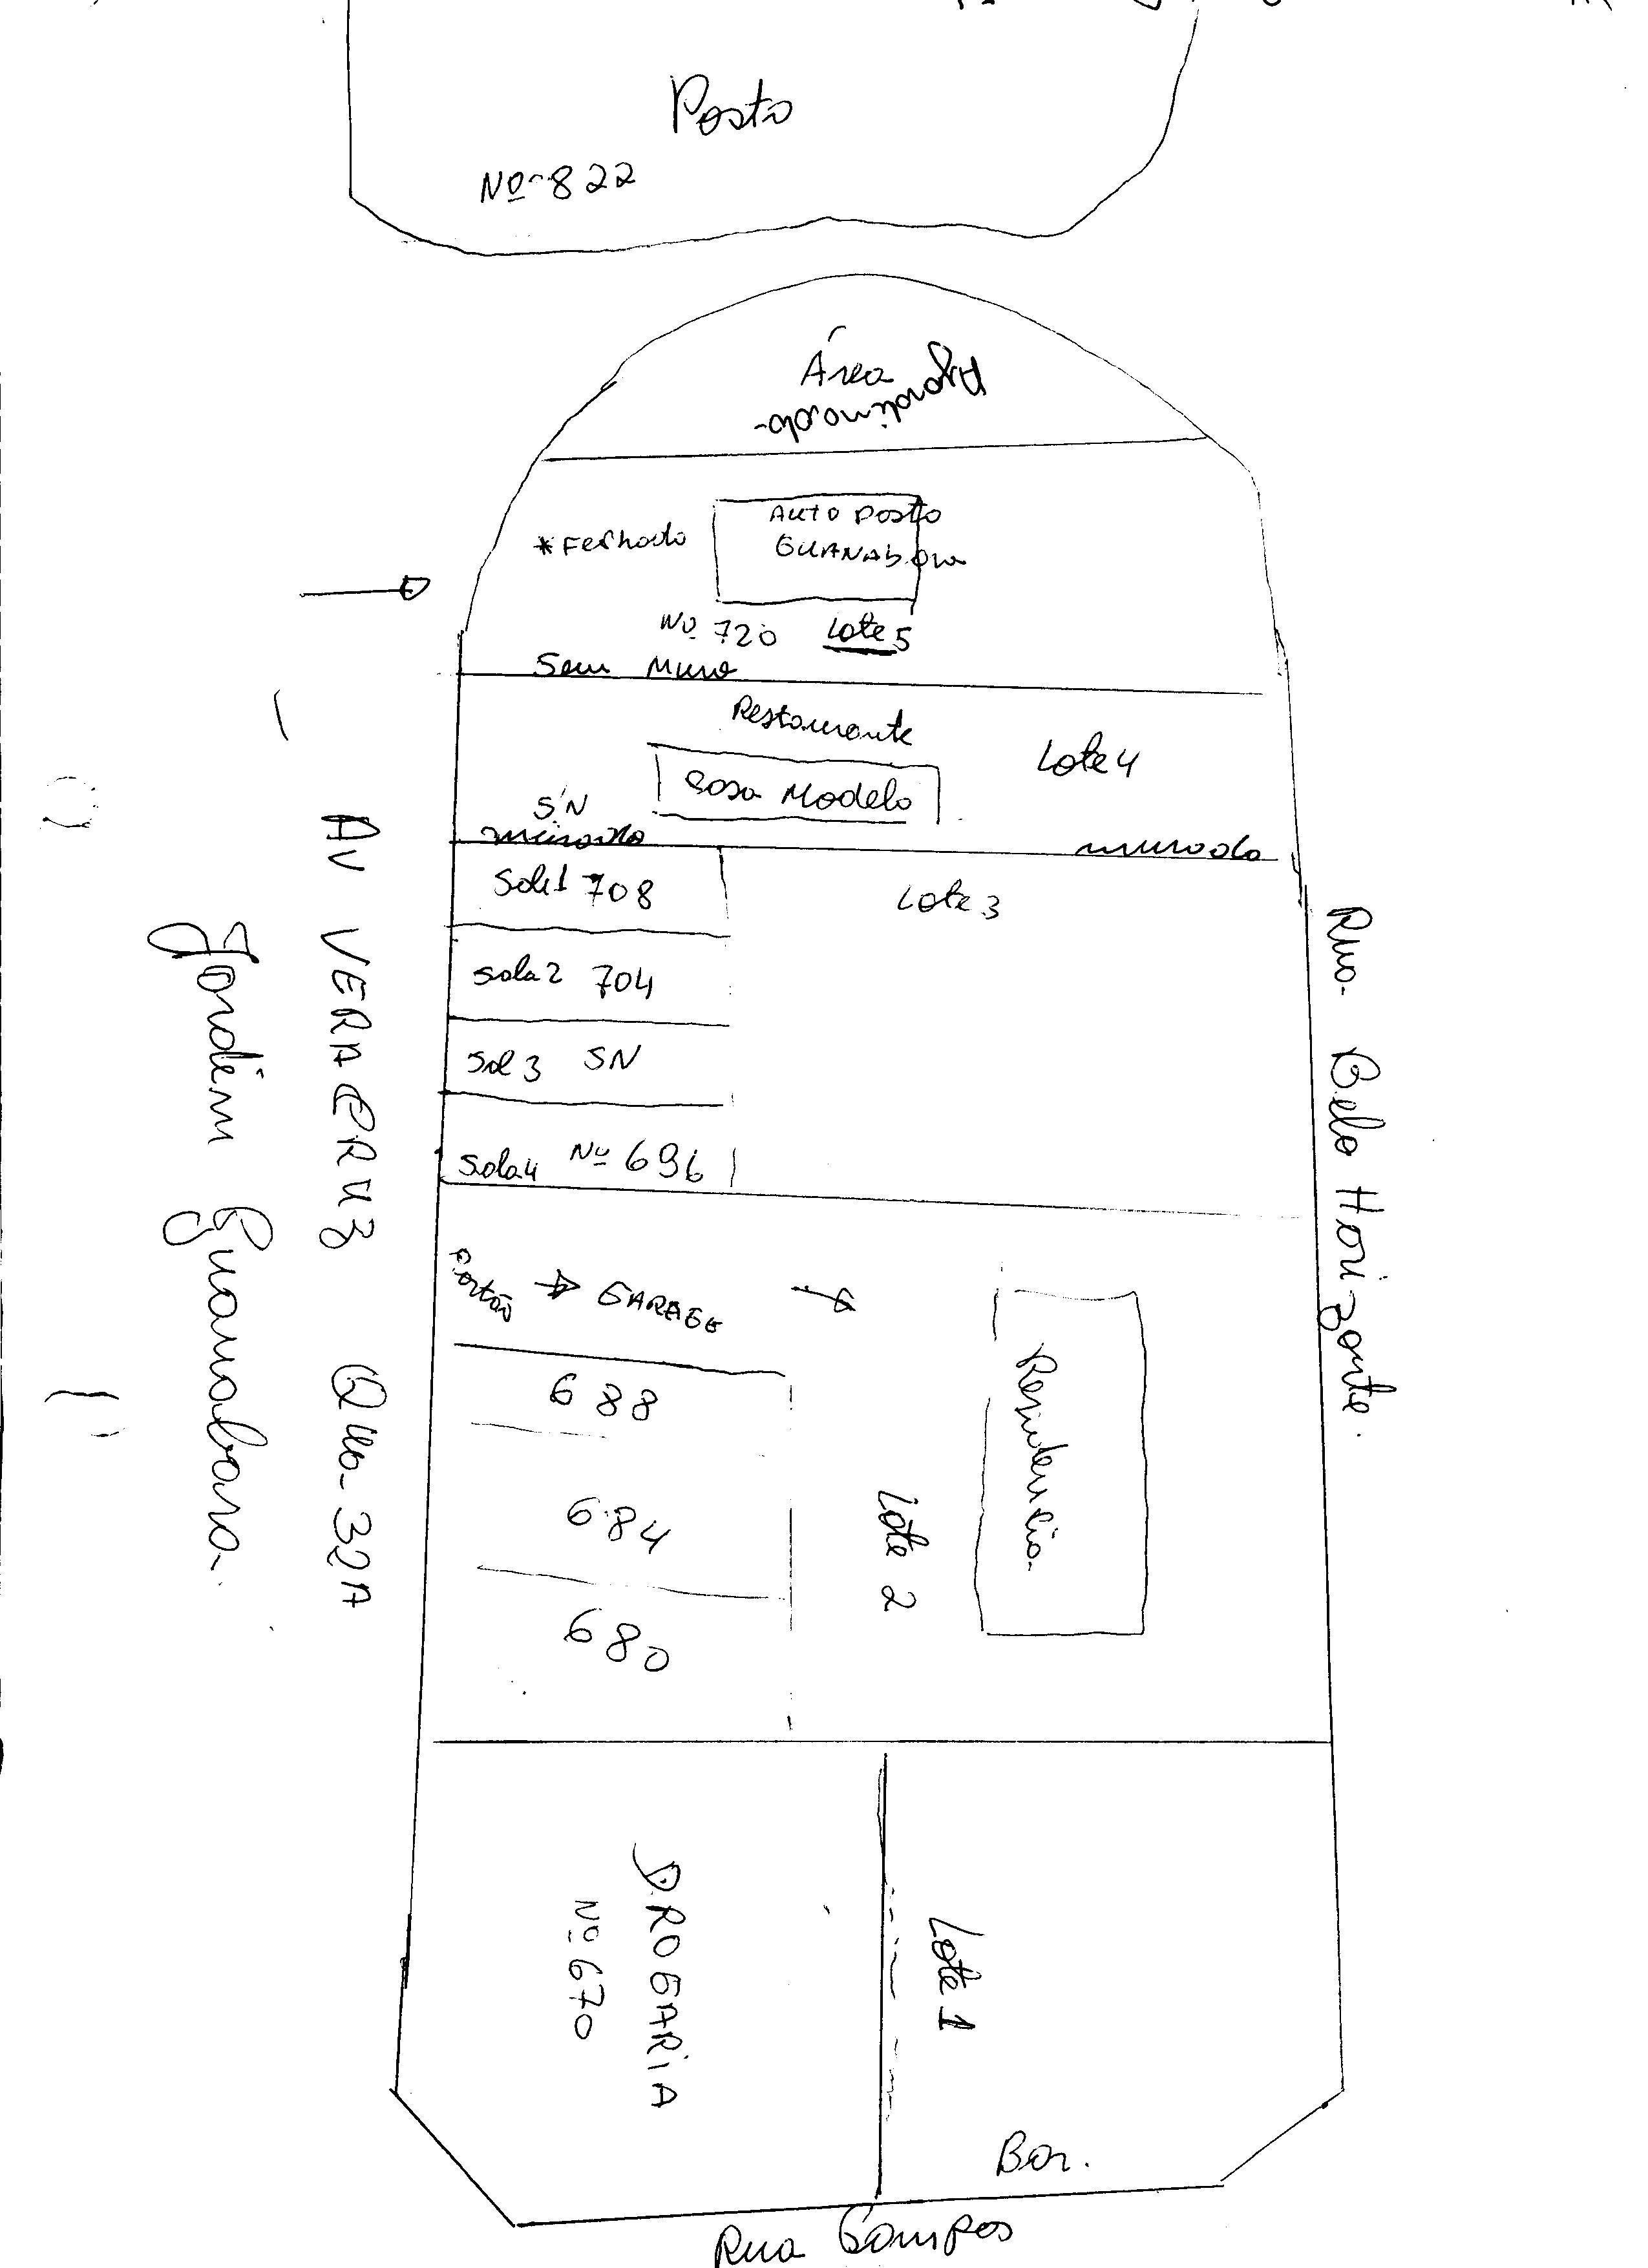 Posto
Nº 822
Área
Ajardinada
*Fechado
AUTO POSTO
GUANABara
Nº 720 Lote 5
Sem Muro
Restaurante
Lote 4
Casa Modelo
S/N
murado
murado
Sala 1 708
Lote 3
Sala 2 704
Sal 3 SN
Sala 4 Nº 696
Portão → GARAGE
688
684
680
Lote 2
Residencia
DROGARIA
Nº 670
Lote 1
Bar.
Rua Campos
AV VERA CRUZ Qua- 32A
Jardim Guanabara
Rua Belo Horizonte.